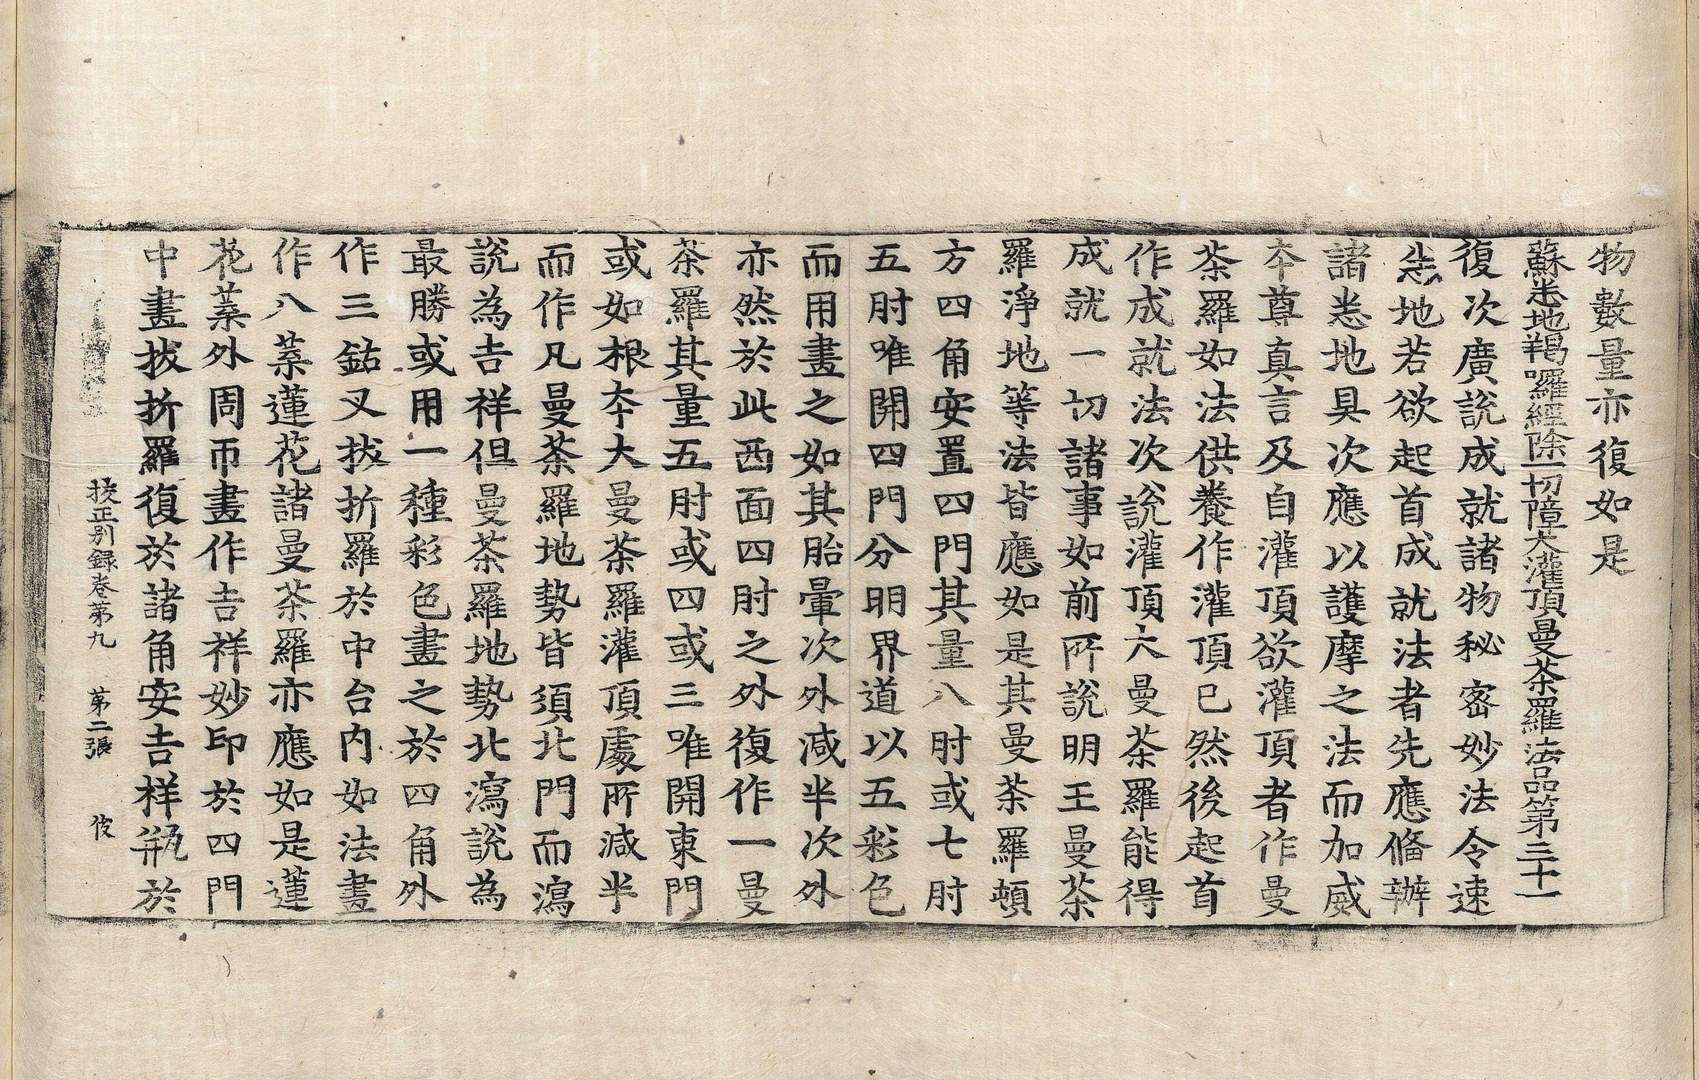 物數量亦復如是
蘇悉地羯囉經除一切障大灌頂曼荼羅法品第三十一
復次廣說成就諸物秘密妙法令速
悉地若欲起首成就法者先應俻辦
諸悉地具次應以護摩之法而加威
夲尊真言及自灌頂欲灌頂者作曼
荼羅如法供養作灌頂已然後起首
作成就法次說灌頂大曼荼羅能得
成就一切諸事如前所說明王曼荼
羅淨地等法皆應如是其曼荼羅頓
方四角安置四門其量八肘或七肘
五肘唯開四門分明界道以五彩色
而用畫之如其胎暈次外減半次外
亦然於此西面四肘之外復作一曼
荼羅其量五肘或四或三唯開東門
或如根夲大曼荼羅灌頂處所減半
而作凡曼荼羅地勢皆須北門而瀉
說為吉祥但曼荼羅地勢北瀉說為
最勝或用一種彩色畫之於四角外
作三鈷叉拔折羅於中台內如法畫
作八葉蓮花諸曼荼羅亦應如是蓮
花葉外周帀畫作吉祥妙印於四門
中畫拔折羅復於諸角安吉祥瓶於
挍正別錄卷第九　第二張　伎